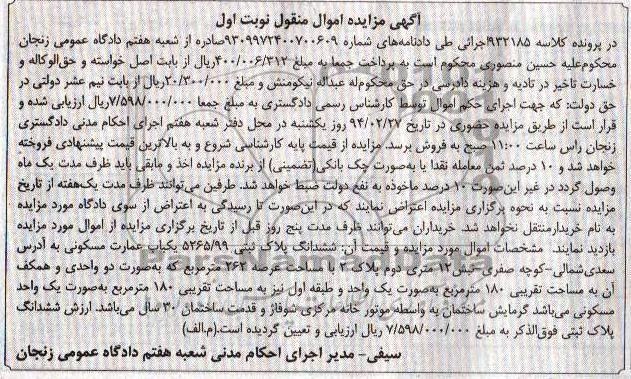 آگهی مزایده اموال منقول نوبت اول
در پرونده کلاسه ۹۳۲۱۸۵اجرائی طی دادنامه‌های شماره ۹۳۰۹۹۷۲۴۰۰۷۰۰۶۰۹صادره از شعبه هفتم دادگاه عمومی زنجان
محکوم‌علیه حسین منصوری محکوم است به پرداخت جمعا به مبلغ ۴۰۰/۰۰۶/۳۱۲ریال از بابت اصل خواسته و حق‌الوکاله و
خسارت تاخیر در تادیه و هزینه دادرسی در حق محکوم‌له عبداله نیکومنش و مبلغ ۲۰/۳۰۰/۰۰۰ریال از بابت نیم عشر دولتی در
حق دولت: که جهت اجرای حکم اموال توسط کارشناس رسمی دادگستری به مبلغ جمعا ۷/۵۹۸/۰۰۰/۰۰۰ریال ارزیابی شده و
قرار است از طریق مزایده حضوری در تاریخ ۹۴/۰۲/۲۷ روز یکشنبه در محل دفتر شعبه هفتم اجرای احکام مدنی دادگستری
زنجان راس ساعت ۱۱:۰۰ صبح به فروش برسد. مزایده از قیمت پایه کارشناسی شروع و به بالاترین قیمت پیشنهادی فروخته
خواهد شد و ۱۰ درصد ثمن معامله نقدا یا به‌صورت چک بانکی(تضمینی) از برنده مزایده اخذ و مابقی باید ظرف مدت یک ماه
وصول گردد در غیر این‌صورت ۱۰ درصد ماخوذه به نفع دولت ضبط خواهد شد. طرفین می‌توانند ظرف مدت یک‌هفته از تاریخ
مزایده نسبت به نحوه برگزاری مزایده اعتراض نمایند که در این‌صورت تا رسیدگی به اعتراض از سوی دادگاه مورد مزایده
به نام خریدارمنتقل نخواهد شد. خریداران می‌توانند ظرف مدت پنج روز قبل از تاریخ برگزاری مزایده از اموال مورد مزایده
بازدید نمایند. مشخصات اموال مورد مزایده و قیمت آن: ششدانگ پلاک ثبتی ۵۲۶۵/۹۹ یکباب عمارت مسکونی به آدرس
سعدی‌شمالی-کوچه صفری-نبش۱۲ متری دوم پلاک۲ با مساحت عرصه ۲۶۳ مترمربع که به‌صورت دو واحدی و همکف
آن به مساحت تقریبی ۱۸۰ مترمربع به‌صورت یک واحد و طبقه اول نیز به مساحت تقریبی ۱۸۰ مترمربع به‌صورت یک واحد
مسکونی می‌باشد گرمایش ساختمان به واسطه موتور خانه مرکزی شوفاژ و قدمت ساختمان ۳۰ سال می‌باشد. ارزش ششدانگ
پلاک ثبتی فوق‌الذکر به مبلغ ۷/۵۹۸/۰۰۰/۰۰۰ ریال ارزیابی و تعیین گردیده است.(م.الف)
سیفی- مدیر اجرای احکام مدنی شعبه هفتم دادگاه عمومی زنجان
ParsNamadData